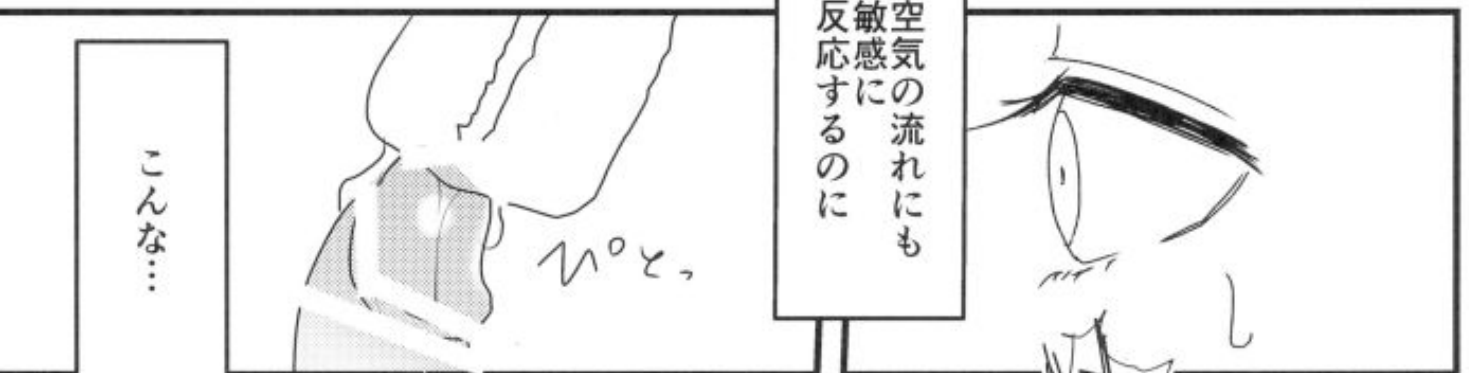 空気の流れにも
敏感に
反応するのに
ぴとっ
こんな…